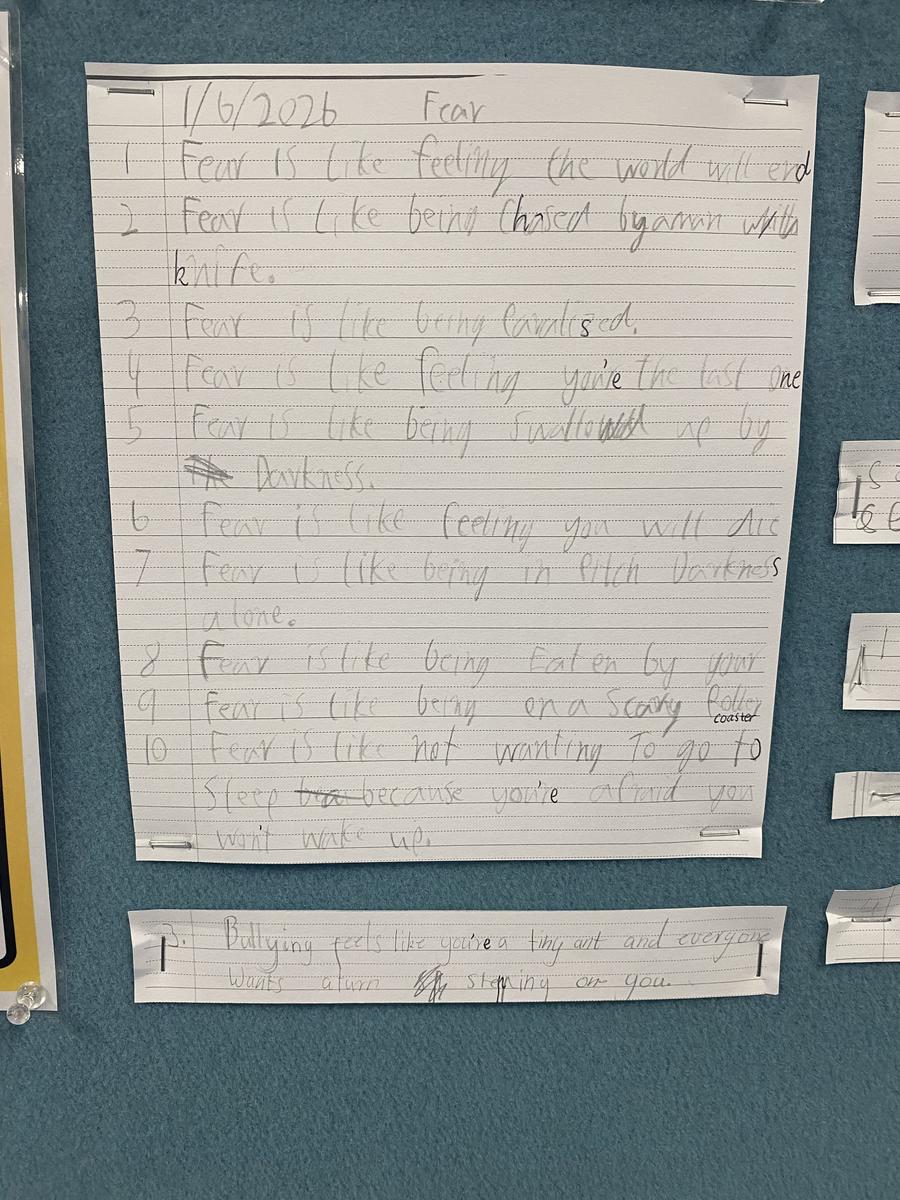 1/6/2026 Fear
1 Fear is like feeling the world will end
2 Fear is like being Chased by a man with
knife.
3 Fear is like being Paralised.
4 Fear is like feeling you're the last one
5 Fear is like being Swallowed up by
Darkness.
6 Fear is like feeling you will die
7 Fear is like being in Pitch Darkness
alone.
8 Fear is like being Eaten by your
9 Fear is like being on a Scary Roller
coaster
10 Fear is like not wanting To go to
Sleep because you're afraid you
won't wake up.
3. Bullying feels like you're a tiny ant and everyone
wants a turn stepping on you.